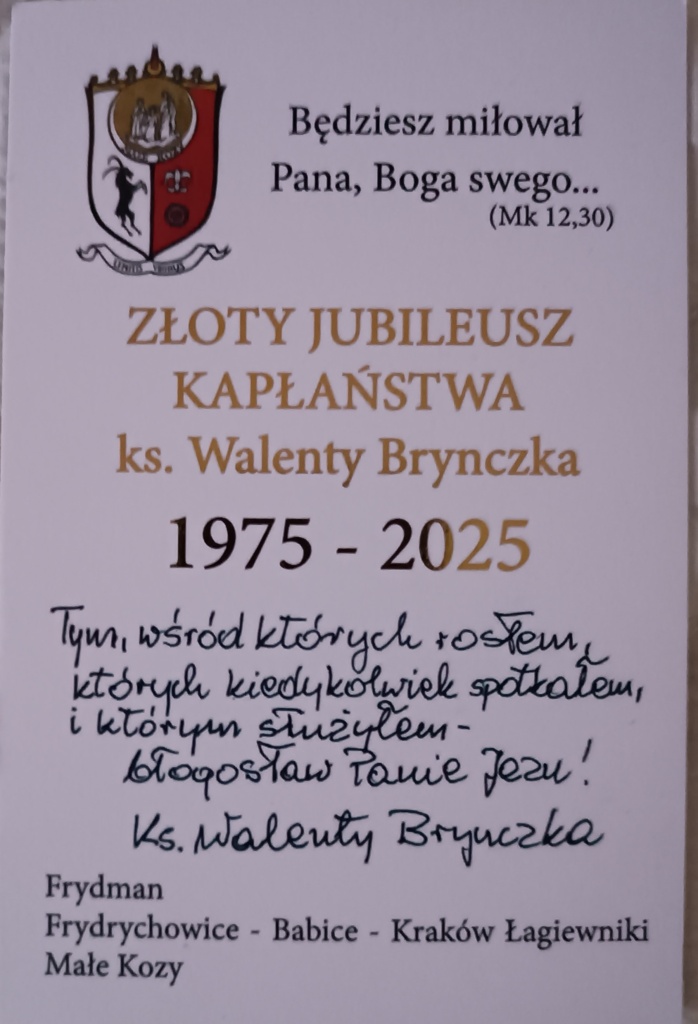 Będziesz miłował
Pana, Boga swego...
(Mk 12,30)
ZŁOTY JUBILEUSZ
KAPŁAŃSTWA
ks. Walenty Brynczka
1975 - 2025
Tym, wśród których rosłem,
których kiedykolwiek spotkałem,
i którym służyłem-
błogosław Panie Jezu!
Ks. Walenty Brynczka
Frydman
Frydrychowice - Babice - Kraków Łagiewniki
Małe Kozy